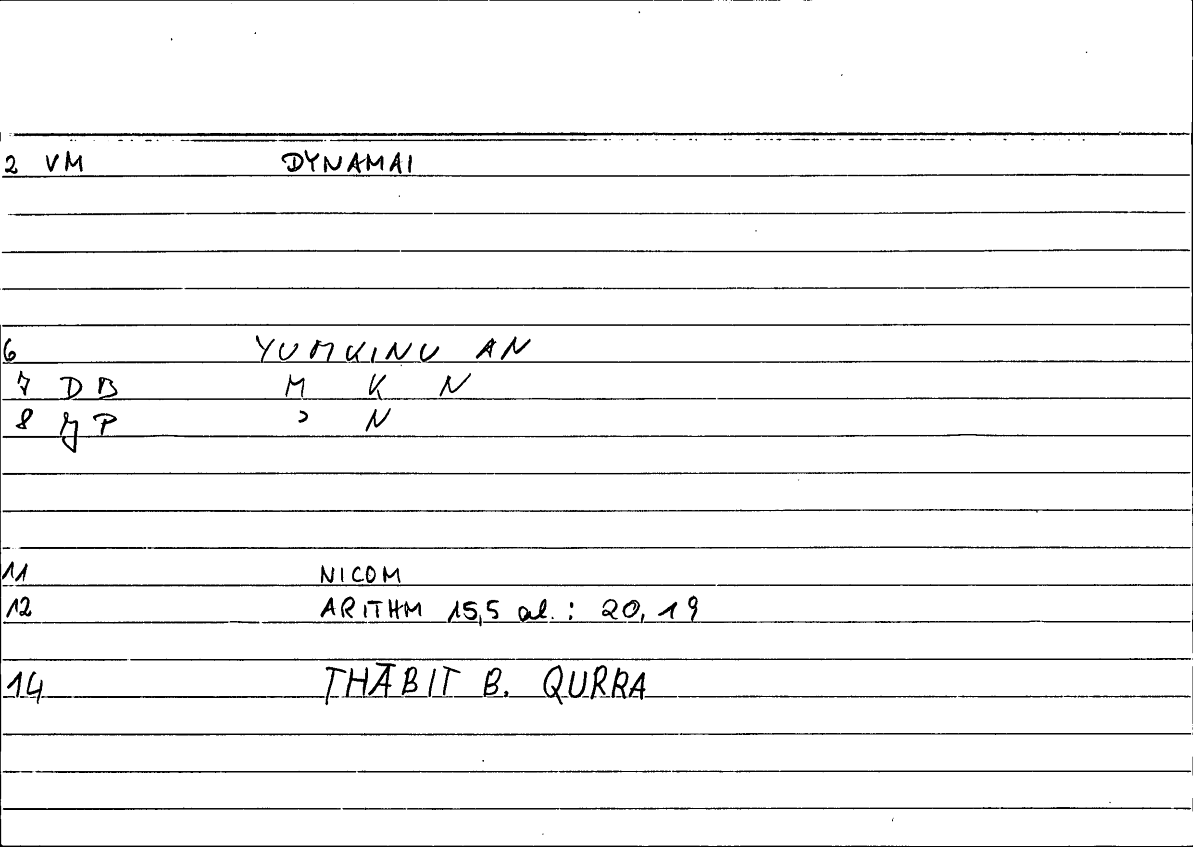 2 VM DYNAMAI
6 YUMKINU AN
7 DB M K N
8 P ʾ N
11 NICOM
12 ARITHM 15,5 al.: 20,19
14 THĀBIT B. QURRA